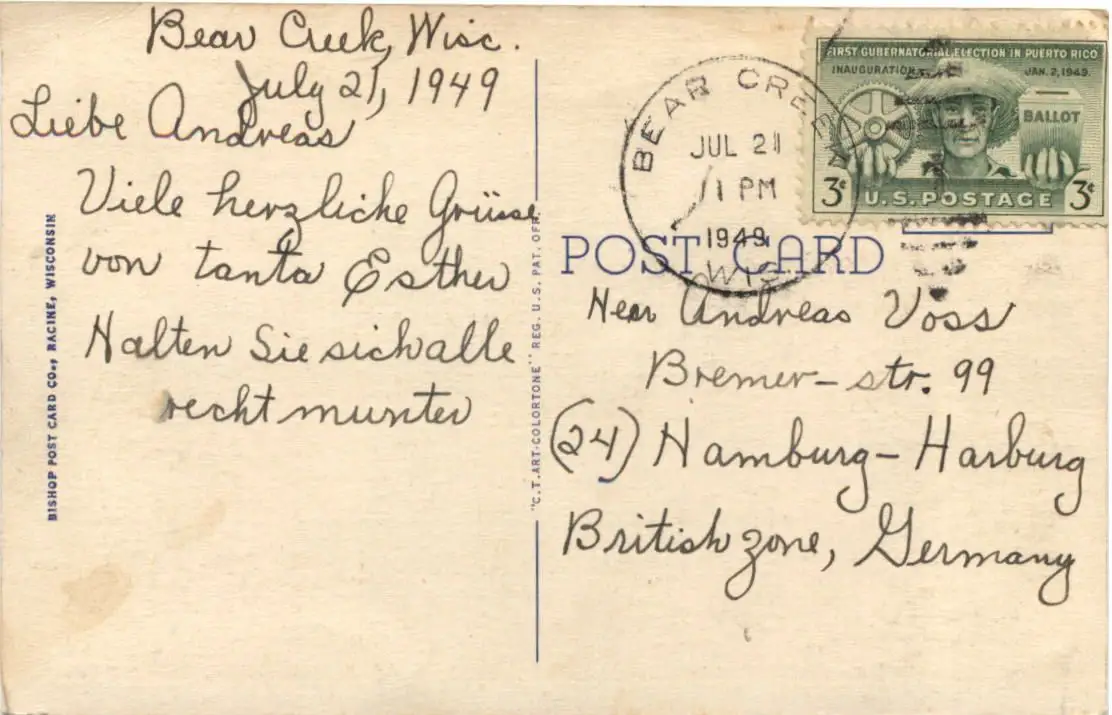 Bear Creek, Wisc.
July 21, 1949
Liebe Andreas
Viele herzliche Grüsse
von tanta Esther
Halten Sie sich alle
recht munter
BISHOP POST CARD CO., RACINE, WISCONSIN
"C.T. ART-COLORTONE" REG. U.S. PAT. OFF.
BEAR CREEK
JUL 21
1 PM
1949
WIS
FIRST GUBERNATORIAL ELECTION IN PUERTO RICO
INAUGURATION JAN. 2, 1949
BALLOT
3¢ U.S. POSTAGE 3¢
POST CARD
Herr Andreas Voss
Bremer-str. 99
(24) Hamburg-Harburg
British zone, Germany